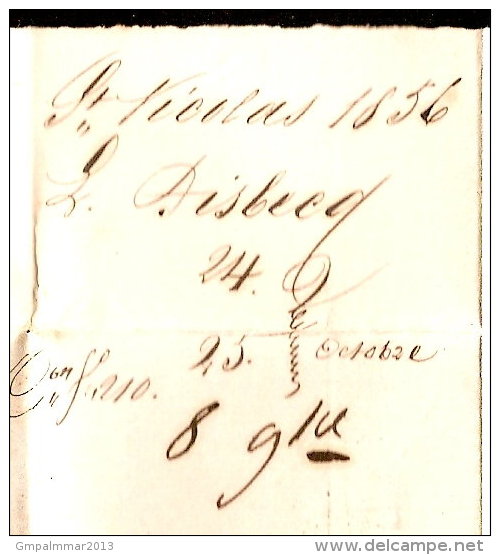 St Nicolas 1856
L. Disbecq
24.
25. Octobre
fo 210.
8 9bre
Gmpalmmar2013
delcampe.net